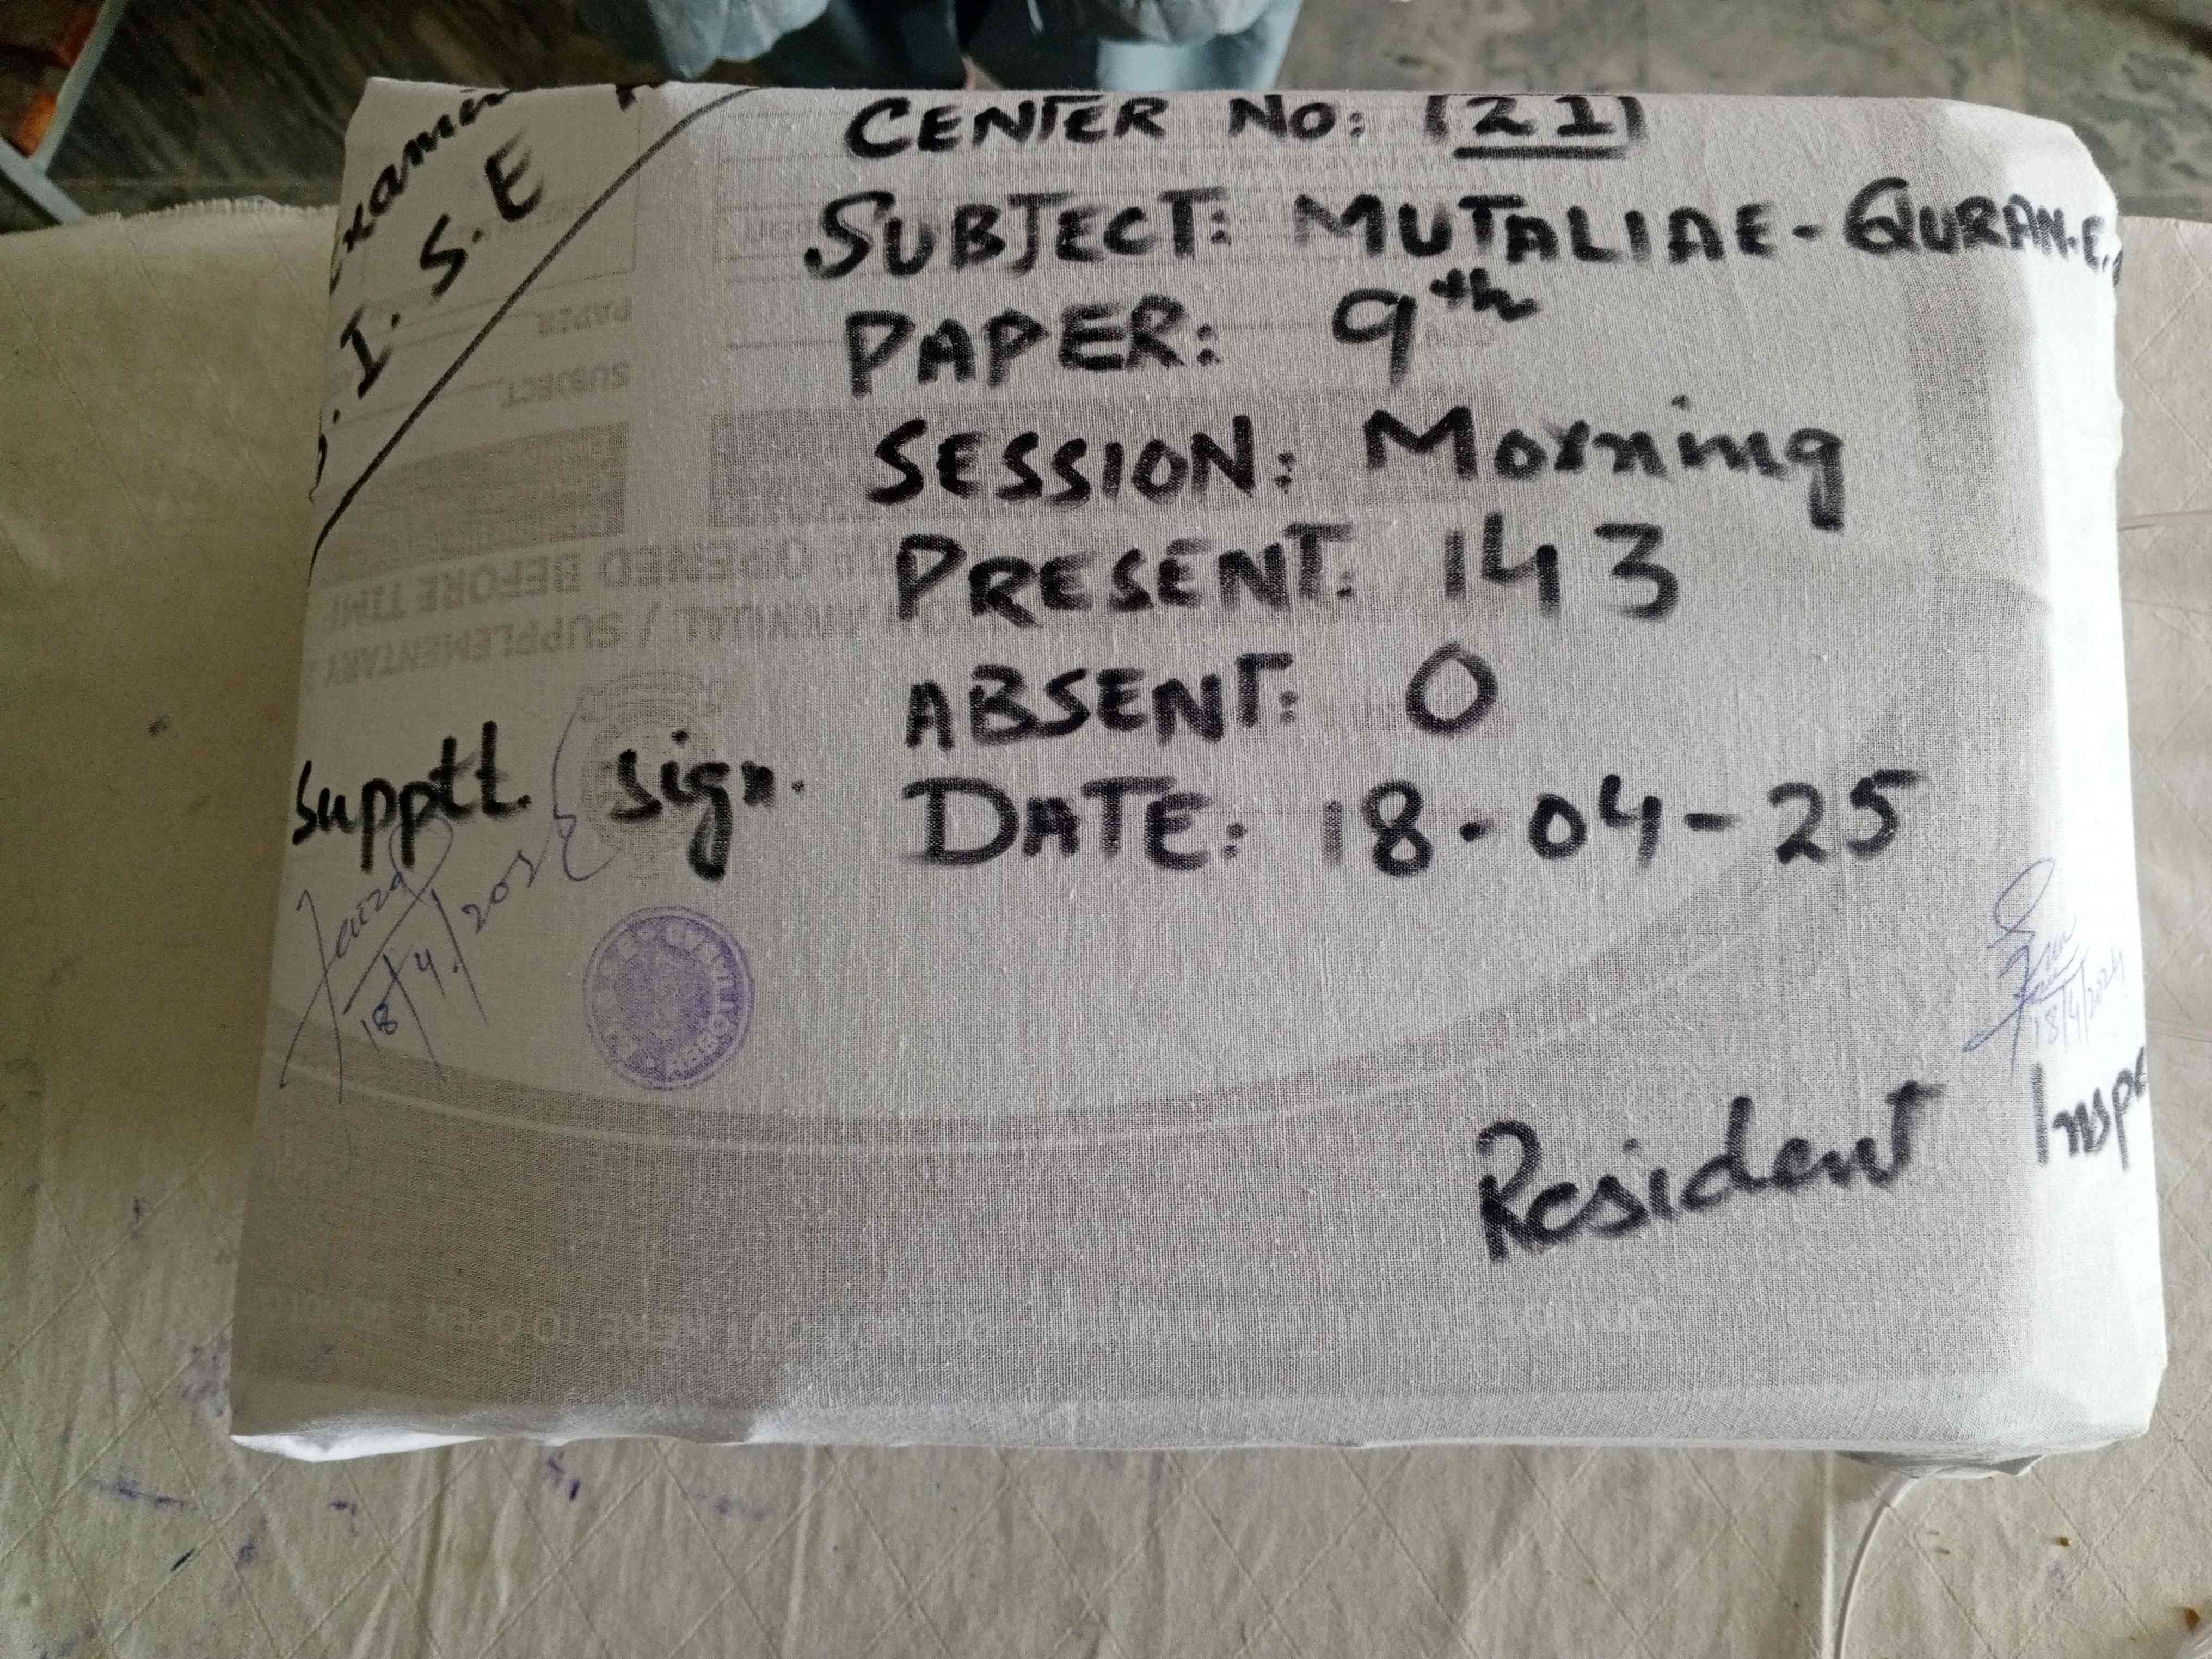 B.I.S.E
CENTER No: 121
SUBJECT: MUTALIAE-QURAN.E.
PAPER: 9th
SESSION: Morning
PRESENT: 143
ABSENT: 0
DATE: 18-04-25
Supptt. sign.
18/4/2025
ABBOTTABAD
18/4/2024
Resident Inspe
PAPER
SUBJECT
IF OPENED BEFORE TIME
ANNUAL / SUPPLEMENTARY
CUT HERE TO OPEN